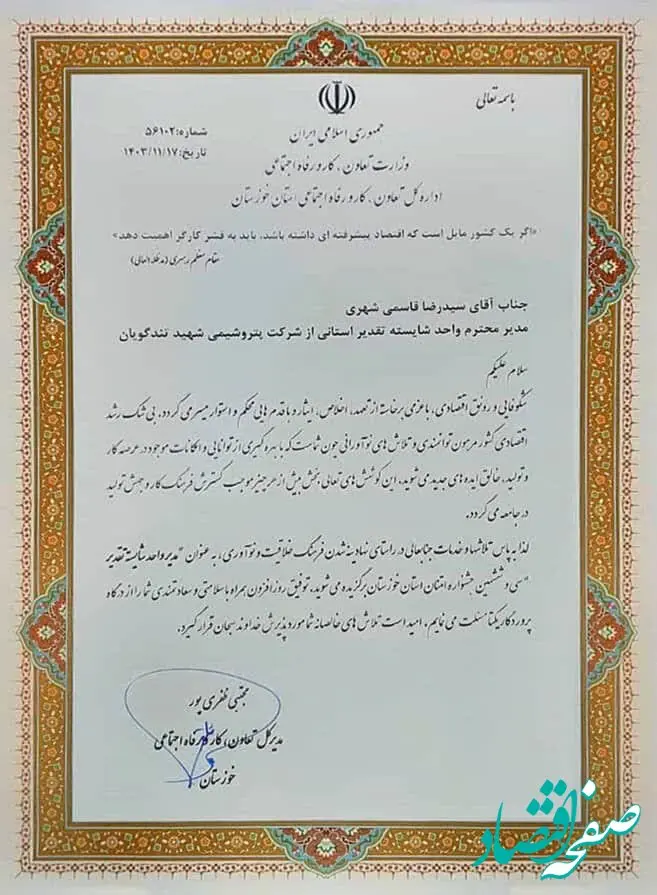 باسمه تعالی
جمهوری اسلامی ایران
وزارت تعاون، کار و رفاه اجتماعی
اداره کل تعاون، کار و رفاه اجتماعی استان خوزستان
شماره: ۵۶۱۰۲
تاریخ: ۱۴۰۳/۱۱/۱۷
«اگر یک کشور مایل است که اقتصاد پیشرفته ای داشته باشد، باید به قشر کارگر اهمیت دهد»
مقام معظم رهبری (مدظله العالی)
جناب آقای سیدرضا قاسمی شهری
مدیر محترم واحد شایسته تقدیر استانی از شرکت پتروشیمی شهید تندگویان
سلام علیکم
شکوفایی و رونق اقتصادی، با عزمی برخاسته از تعهد، اخلاص، ایثار و با قدم هایی محکم و استوار میسر می گردد. بی شک رشد
اقتصادی کشور مرهون توانمندی و تلاش های نوآورانی چون شماست که با بهره گیری از توانایی و امکانات موجود در عرصه کار
و تولید، خالق ایده های جدید می شوید، این کوشش های تعالی بخش بیش از هر چیز موجب گسترش فرهنگ کار و جهش تولید
در جامعه می گردد.
لذا به پاس تلاشها و خدمات جنابعالی در راستای نهادینه شدن فرهنگ خلاقیت و نوآوری، به عنوان "مدیر واحد شایسته تقدیر
"سی و ششمین جشنواره امتنان استان خوزستان برگزیده می شوید، توفیق روزافزون همراه با سلامتی و سعادتمندی شما را از درگاه
پروردگار یکتا مسئلت می نمایم. امید است تلاش های خالصانه شما مورد پذیرش خداوند سبحان قرار گیرد.
مجتبی ظفری پور
مدیرکل تعاون، کار و رفاه اجتماعی
خوزستان
صفحه اقتصاد